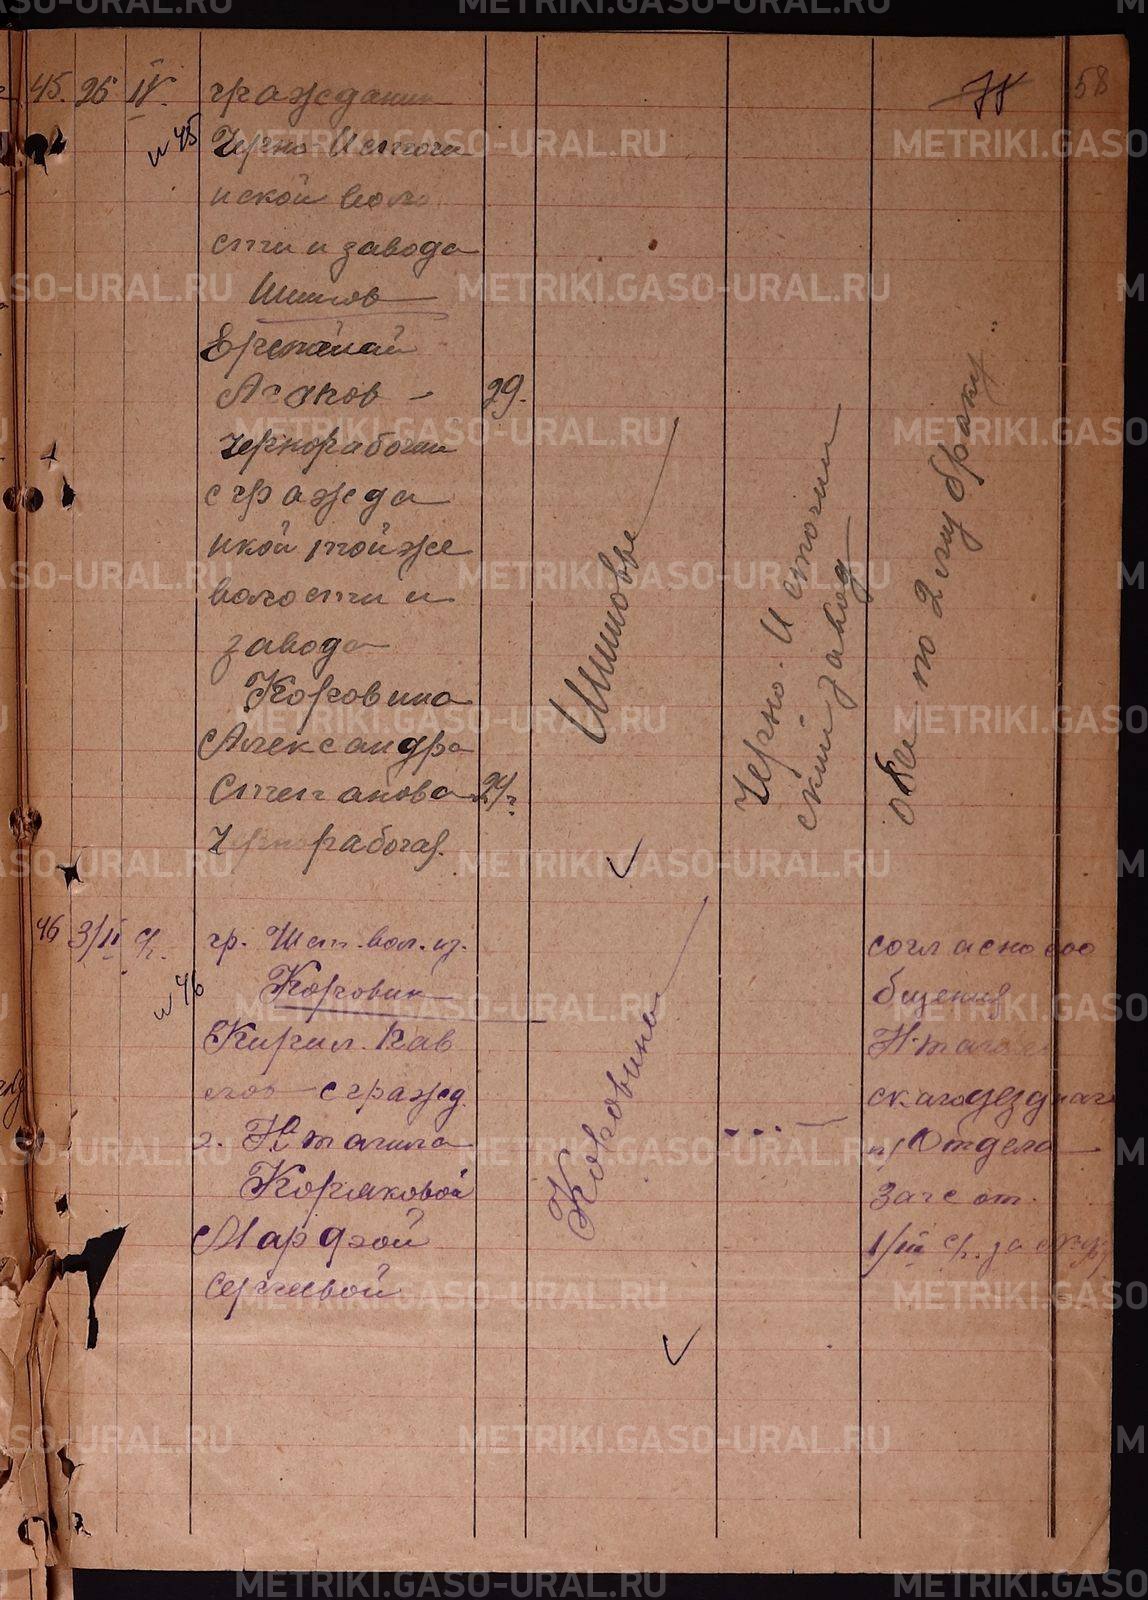 78 58
45. 26 IV.
и 45
граждани
Черно-Источи
нской воло
сти и завода
Шишов
Еремей
Агапов -
29.
чернорабочий
с гражда
нкой той же
волости и
завода
Коровина
Александра
Степанова
24 г
Чернорабочая.
Шишовы
Черно-Источин
ский завод
оба по 2 му браку
46 3/II с/г.
и 46
гр. вол. из.
Коровин
Кирил. Пав
лов с гражд.
г. Н Тагила
Коряковой
Марфой
Сергеевой
Коровины
согласно соо
бщения
Н-Тагил
ского уездного
п/Отдела
Загс от.
1/III с/г. за
METRIKI.GASO-URAL.RU